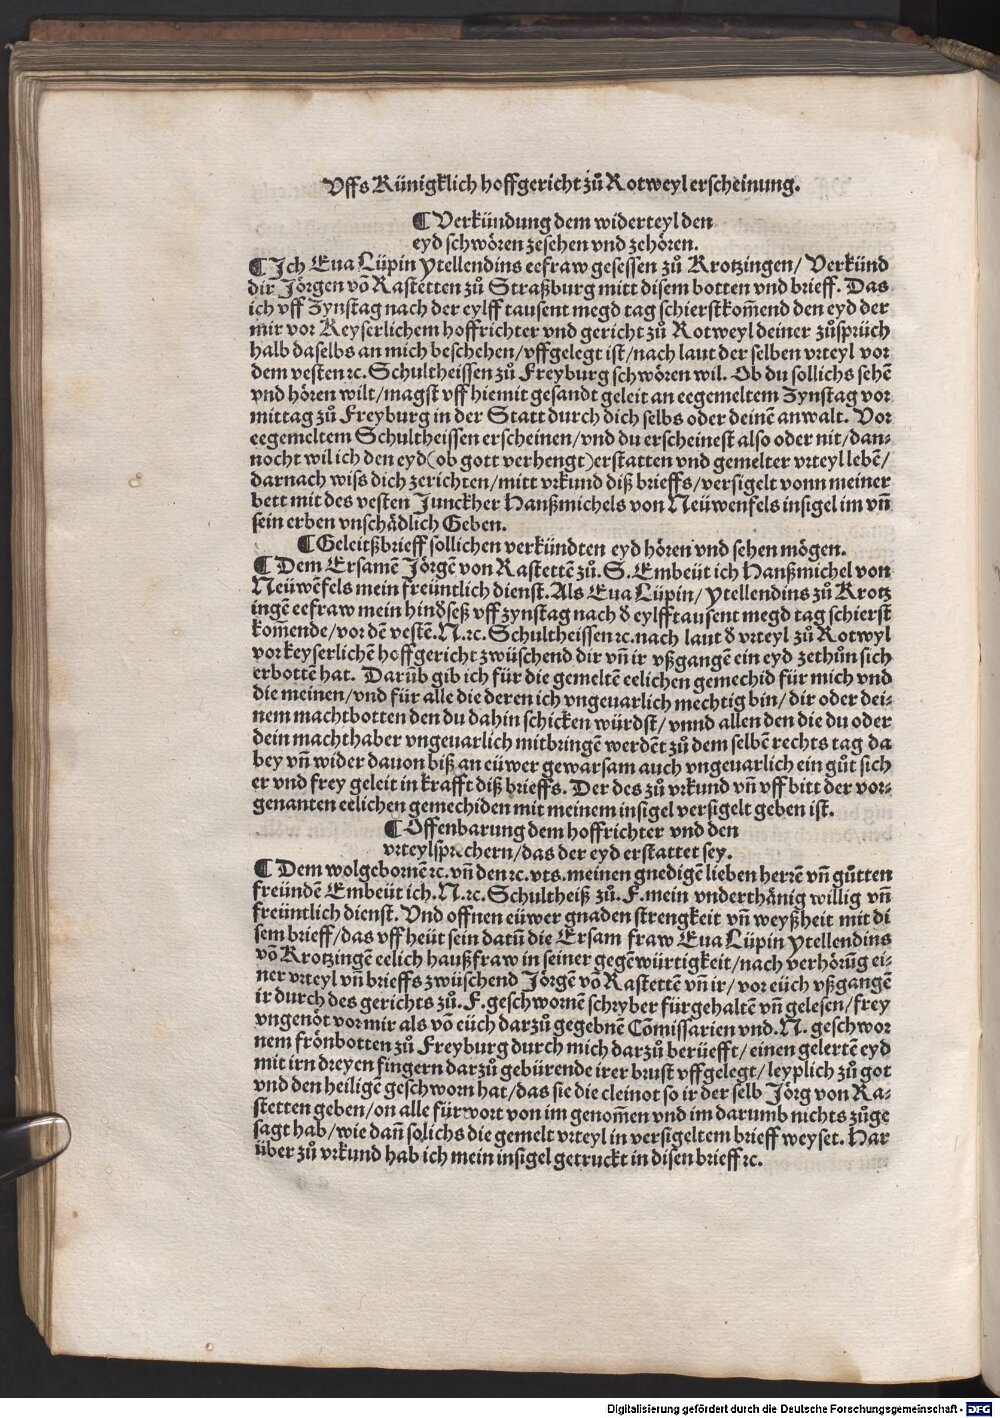 Uffs Künigklich hoffgericht zů Rotweyl erscheinung.
¶ Verkündung dem widerteyl den
eyd schwören zesehen vnd zehören.
¶ Ich Eua Lüpin ytellendins eefraw gesessen zů Krotzingen/ Verkünd
dir Jörgen vō Rastetten zů Straßburg mitt disem botten vnd brieff. Das
ich vff Zynstag nach der eylff tausent megd tag schierstkom̄end den eyd der
mir vor Keyserlichem hoffrichter vnd gericht zů Rotweyl deiner zůsprüch
halb daselbs an mich beschehen/vffgelegt ist/nach laut der selben vrteyl vor
dem vesten ꝛc. Schultheissen zů Freyburg schwören wil. Ob du sollichs sehē
vnd hören wilt/magst vff hiemit gesandt geleit an eegemeltem Zynstag vor
mittag zů Freyburg in der Statt durch dich selbs oder deinē anwalt. Vor
eegemeltem Schultheissen erscheinen/vnd du erscheinest also oder nit/dan⸗
nocht wil ich den eyd(ob gott verhengt)erstatten vnd gemelter vrteyl lebē/
darnach wiss dich zerichten/mitt vrkund diß brieffs/versigelt vonn meiner
bett mit des vesten Junckher Hanßmichels von Neüwenfels insigel im vn̄
sein erben vnschädlich Geben.
¶ Geleitßbrieff sollichen verkündten eyd hören vnd sehen mögen.
¶ Dem Ersamē Jörgē von Rastettē zů. S. Embeüt ich Hanßmichel von
Neüwēfels mein freüntlich dienst. Als Eua Lüpin/ ytellendins zů Krotz
ingē eefraw mein hindseß vff zynstag nach d̕ eylfftausent megd tag schierst
kom̄ende/vor dē vestē. N. ꝛc. Schultheissen ꝛc. nach laut d̕ vrteyl zů Rotwyl
vor keyserlichē hoffgericht zwüschend dir vn̄ ir vßgangē ein eyd zethůn sich
erbottē hat. Darüb gib ich für die gemeltē eelichen gemechid für mich vnd
die meinen/vnd für alle die deren ich vngeuarlich mechtig bin/dir oder dei⸗
nem machtbotten den du dahin schicken würdst/vnnd allen den die du oder
dein machthaber vngeuarlich mitbringē werdēt zů dem selbē rechts tag da
bey vn̄ wider dauon biß an eüwer gewarsam auch vngeuarlich ein gůt sich
er vnd frey geleit in krafft diß brieffs. Der des zů vrkund vn̄ vff bitt der vor⸗
genanten eelichen gemechiden mit meinem insigel versigelt geben ist.
¶ Offenbarung dem hoffrichter vnd den
vrteylsprechern/das der eyd erstattet sey.
¶ Dem wolgebornē ꝛc. vn̄ den ꝛc. vts. meinen gnedigē lieben herrē vn̄ gůtten
freündē Embeüt ich. N. ꝛc. Schultheiß zů. F. mein vnderthänig willig vn̄
freüntlich dienst. Vnd offnen eüwer gnaden strengkeit vn̄ weyßheit mit di
sem brieff/das vff heüt sein datū die Ersam fraw Eua Lüpin ytellendins
vō Krotzingē eelich haußfraw in seiner gegēwürtigkeit/nach verhörūg ei⸗
ner vrteyl vn̄ brieffs zwüschend Jörgē vō Rastettē vn̄ ir/vor eüch vßgangē
ir durch des gerichts zů. F. geschwornē schryber fürgehaltē vn̄ gelesen/frey
vngenöt vor mir als vō eüch darzů gegebnē Cōmissarien vnd. N. geschwor
nem frönbotten zů Freyburg durch mich darzů berüefft/einen gelertē eyd
mit irn dreyen fingern darzů gebürende irer brust vffgelegt/leyplich zů got
vnd den heiligē geschworn hat/das sie die cleinot so ir der selb Jörg von Ra⸗
stetten geben/on alle fürwort von im genom̄en vnd im darumb nichts zůge
sagt hab/wie dan̄ solichs die gemelt vrteyl in versigeltem brieff weyset. Har
über zů vrkund hab ich mein insigel getruckt in disen brieff ꝛc.
Digitalisierung gefördert durch die Deutsche Forschungsgemeinschaft - DFG